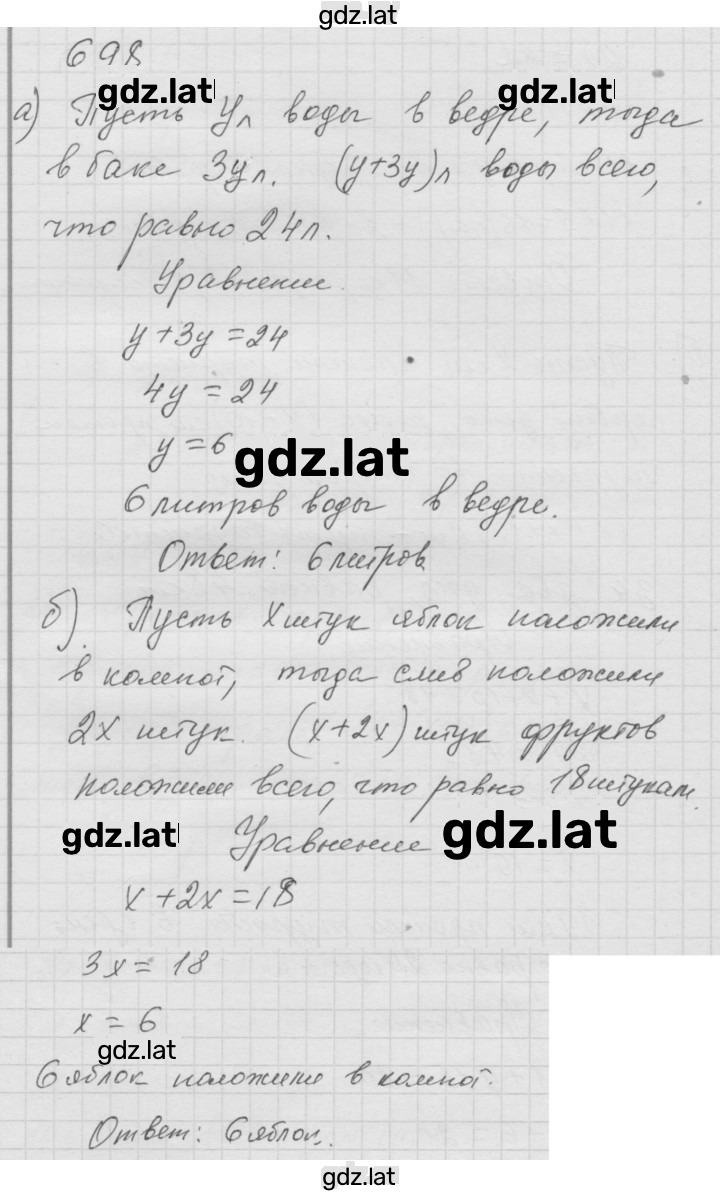 gdz.lat
698
gdz.lat gdz.lat
а) Пусть y л воды в ведре, тогда
в баке 3y л. (y+3y) л воды всего,
что равно 24 л.
Уравнение.
y+3y=24
4y=24
y=6
gdz.lat
6 литров воды в ведре.
Ответ: 6 литров
б). Пусть x штук яблок положили
в компот, тогда слив положили
2x штук. (x+2x) штук фруктов
положили всего, что равно 18 штукам.
gdz.lat Уравнение gdz.lat
x+2x=18
3x=18
x=6
gdz.lat
6 яблок положили в компот.
Ответ: 6 яблок.
gdz.lat